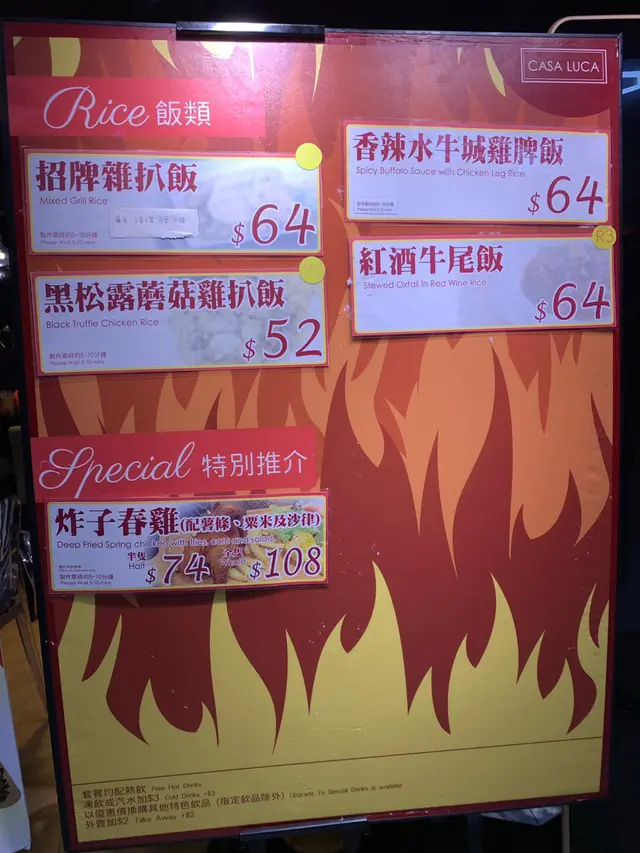 CASA LUCA
Rice 飯類
招牌雜扒飯
Mixed Grill Rice
$64
製作需時約5-10分鐘
Please Wait 5-10 mins
黑松露蘑菇雞扒飯
Black Truffle Chicken Rice
$52
製作需時約5-10分鐘
Please Wait 5-10 mins
香辣水牛城雞髀飯
Spicy Buffalo Sauce with Chicken Leg Rice
$64
紅酒牛尾飯
R3
Stewed Oxtail in Red Wine Rice
$64
Special 特別推介
炸子春雞(配薯條、粟米及沙律)
Deep Fried Spring chicken with fries, corn and salad
半隻 Half $74 全隻 Whole $108
製作需時約5-10分鐘
Please Wait 5-10 mins
套餐均配熱飲 Free Hot Drinks
凍飲或汽水加$3 Cold Drinks +$3
以優惠價換購其他特色飲品 (指定飲品除外) Upgrade To Special Drinks is available
外賣加$2 Take Away +$2